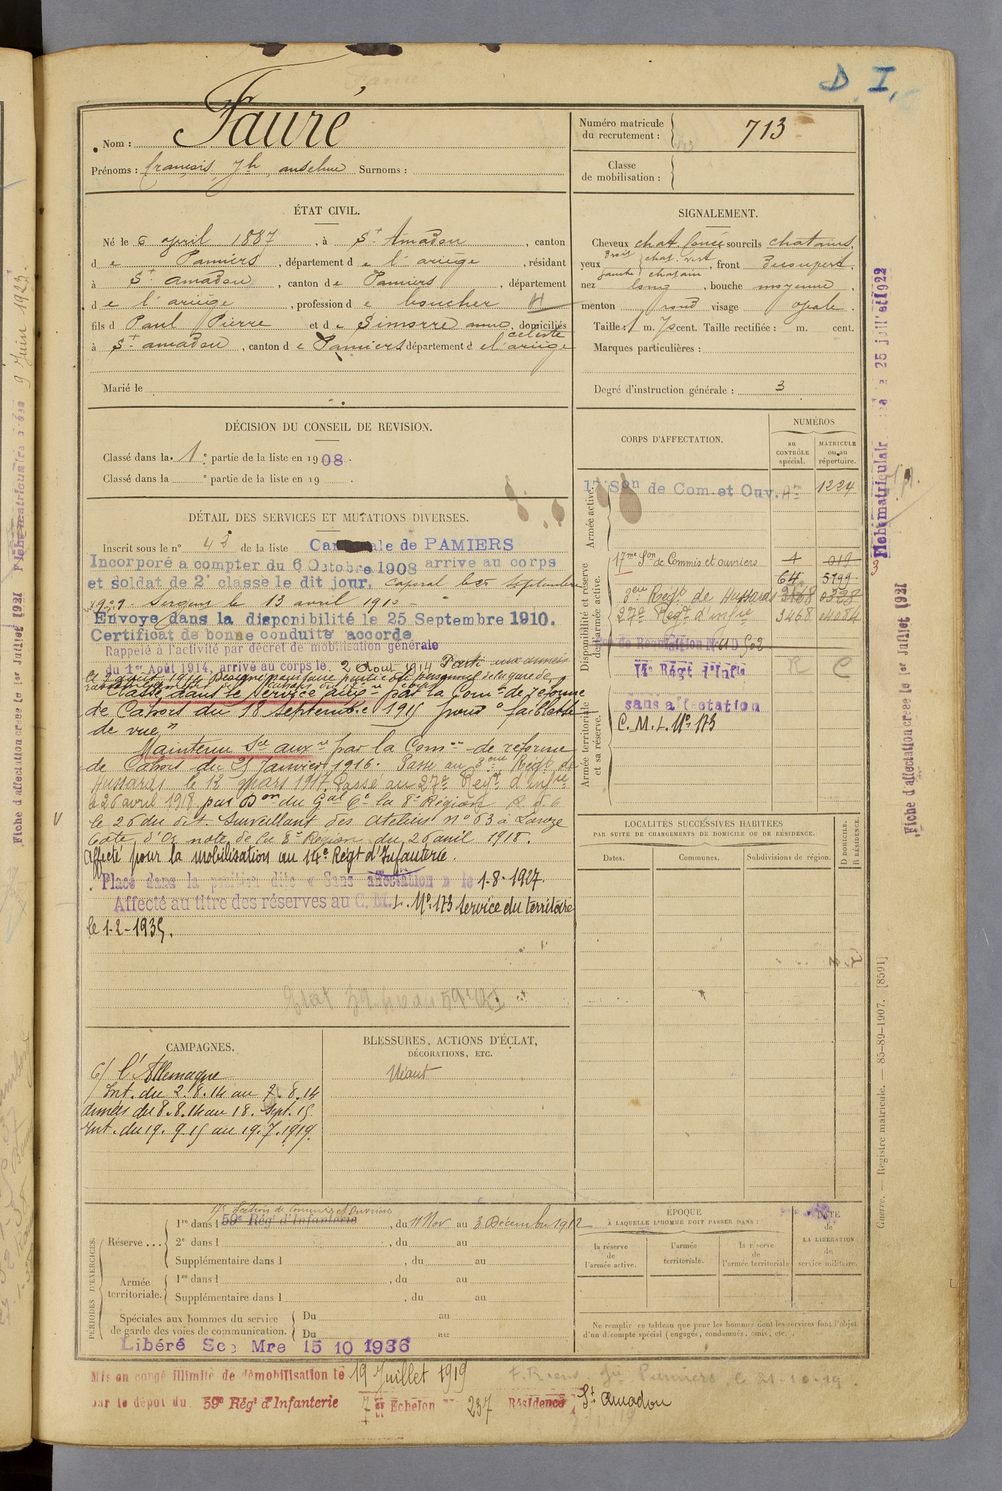 D. I.
Nom : Fauré
Prénoms : françois Jh anselme Surnoms :
Numéro matricule du recrutement : 713
Classe de mobilisation :
ÉTAT CIVIL.
Né le 6 april 1887, à St Amadou, canton
de Pamiers, département de l'ariège, résidant
à St amadou, canton de Pamiers, département
de l'ariège, profession de boucher
fils d Paul Pierre et de Simorre anne, domiciliés
céleste
à St amadou, canton de Pamiers département de l'ariège
Marié le
SIGNALEMENT.
Cheveux chat. foncé sourcils chatains
yeux droit chat. vert gauche chatain, front Découvert.
nez long, bouche moyenne,
menton rond visage ovale.
Taille : 1 m. 70 cent. Taille rectifiée : m. cent.
Marques particulières :
Degré d'instruction générale : 3
DÉCISION DU CONSEIL DE RÉVISION.
Classé dans la 1e partie de la liste en 1908.
Classé dans la e partie de la liste en 19 .
DÉTAIL DES SERVICES ET MUTATIONS DIVERSES.
Inscrit sous le n° 43 de la liste Cantonale de PAMIERS
Incorporé a compter du 6 Octobre 1908 arrive au corps
et soldat de 2e classe le dit jour, Caporal le 25 Septembre
1909. Sergent le 13 avril 1910
Envoye dans la disponibilité le 25 Septembre 1910.
Certificat de bonne conduite accorde
Rappelé à l'activité par décret de mobilisation générale
du 1er Août 1914, arrivé au corps le 2 Aout 1914 Parti aux armées
Classé dans le service auxre par la Comon de réforme
de Cahors du 18 septembre 1915 pour "faiblesse
de vue"
Maintenu Sce auxre par la Comon de réforme
de Cahors du 31 Janvier 1916. Passé au 3eme Regt de
Hussards le 12 mars 1917. Passé au 27e Regt d'Infie
le 26 avril 1918 par Don du Gal Ct la 8e Région
le 26 du dit. Surveillant des Ateliers n° 63 à Lavoye
Cote d'Or, note de la 8e Région du 26 avril 1918.
Affecté pour la mobilisation au 14e Régt d'Infanterie.
Placé dans la position dite « Sans affectation » le 1-8-1927.
Affecté au titre des réserves au C. M. L. N° 173 Service du territoire
le 1-2-1935.
CORPS D'AFFECTATION.
NUMÉROS
au CONTRÔLE spécial.
MATRICULE ou au répertoire.
Armée active.
17e Son de Com. et Ouv. 1224
Disponibilité et réserve de l'armée active.
17me Son de Commis et ouvriers 1
64 5199
3eme Regt de Hussard
27e Regt d'Infie 3458
14e Régt d'Infie R C
Armée territoriale et sa réserve.
sans affectation
C. M. L. N° 173
LOCALITÉS SUCCESSIVES HABITÉES
PAR SUITE DE CHANGEMENTS DE DOMICILE OU DE RÉSIDENCE.
Dates. Communes. Subdivisions de région.
D DOMICILE. R RÉSIDENCE.
CAMPAGNES.
C/ l'Allemagne
Int. du 2. 8. 14 au 7. 8. 14
Armées du 8. 8. 14 au 18. Sept. 15
Int. du 19. 9. 15 au 19. 7. 1919.
BLESSURES, ACTIONS D'ÉCLAT,
DÉCORATIONS, ETC.
Néant
PÉRIODES D'EXERCICES.
17e Section de Commis et Ouvriers
Réserve 1re dans l 59e Rég' d'Infanterie, du 11 Nov au 3 Décembre 1912
2e dans l , du au
Supplémentaire dans l , du au
Armée territoriale. 1re dans l , du au
Supplémentaire dans l , du au
Spéciales aux hommes du service
de garde des voies de communication. Du au
Du au
ÉPOQUE
À LAQUELLE L'HOMME DOIT PASSER DANS :
la réserve de l'armée active.
l'armée territoriale.
la réserve de l'armée territoriale
DATE de LA LIBÉRATION du service militaire.
Ne remplir ce tableau que pour les hommes dont les services font l'objet
d'un décompte spécial (engagés, condamnés, omis, etc.).
Libéré Sce Mre 15 10 1936
Mis en congé illimité de démobilisation le 19 Juillet 1919
par le dépôt du 59e Régt d'Infanterie 7e Echelon 237 Résidence St Amadou
Guerre. — Registre matricule. — 85-89-1907. [8591]
Fiche d'affectation créée le 1er Juillet 1921
Fiche matriculaire le 25 juillet 1922
Fiche d'affectation créée le 1er Juillet 1921
9 Juin 1923